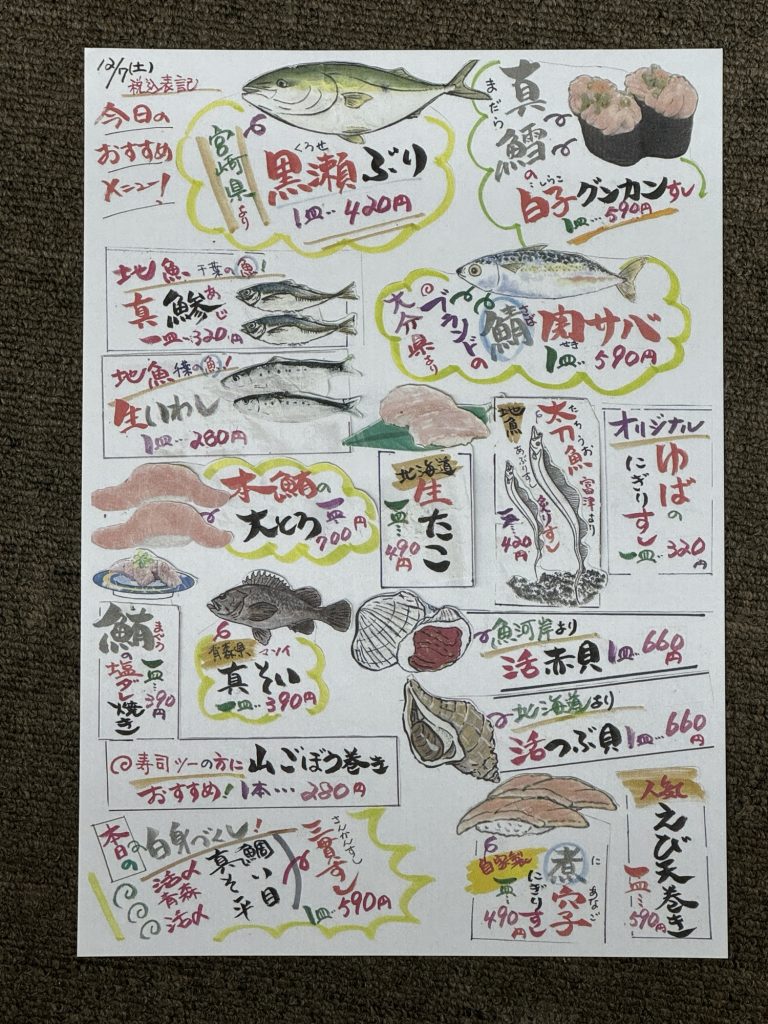 12/7(土)
税込表記
今日の
おすすめ
メニュー!
宮崎県より
くろせ
黒瀬ぶり
1皿…420円
まだら
真鱈の
しらこ
白子グンカンすし
1皿…590円
地魚 千葉の魚!
真鯵
あじ
一皿…320円
大分県より
ブランドの
さば
鯖
関サバ
せき
1皿…590円
地魚 千葉の魚!
生いわし
1皿…280円
本鮪の
大とろ
一皿…700円
北海道
生たこ
一皿…490円
地魚
たちうお
太刀魚
富津より
あぶりすし
炙りすし
一皿…420円
オリジナル
ゆばの
にぎりすし
一皿…320円
まぐろ
鮪の
塩ダレ
焼き
一皿…390円
青森県
マソイ
真そい
一皿…390円
魚河岸より
活赤貝 1皿…660円
北海道より
活つぶ貝 1皿…660円
寿司ツーの方に
おすすめ!
山ごぼう巻き
1本…280円
本日の
白身づくし!
活〆 鯛
青森 真そい
活〆 平目
さんかんすし
三貫すし
1皿…590円
自家製
に あなご
煮穴子
にぎりすし
一皿…490円
人気
えび天巻き
一皿…590円